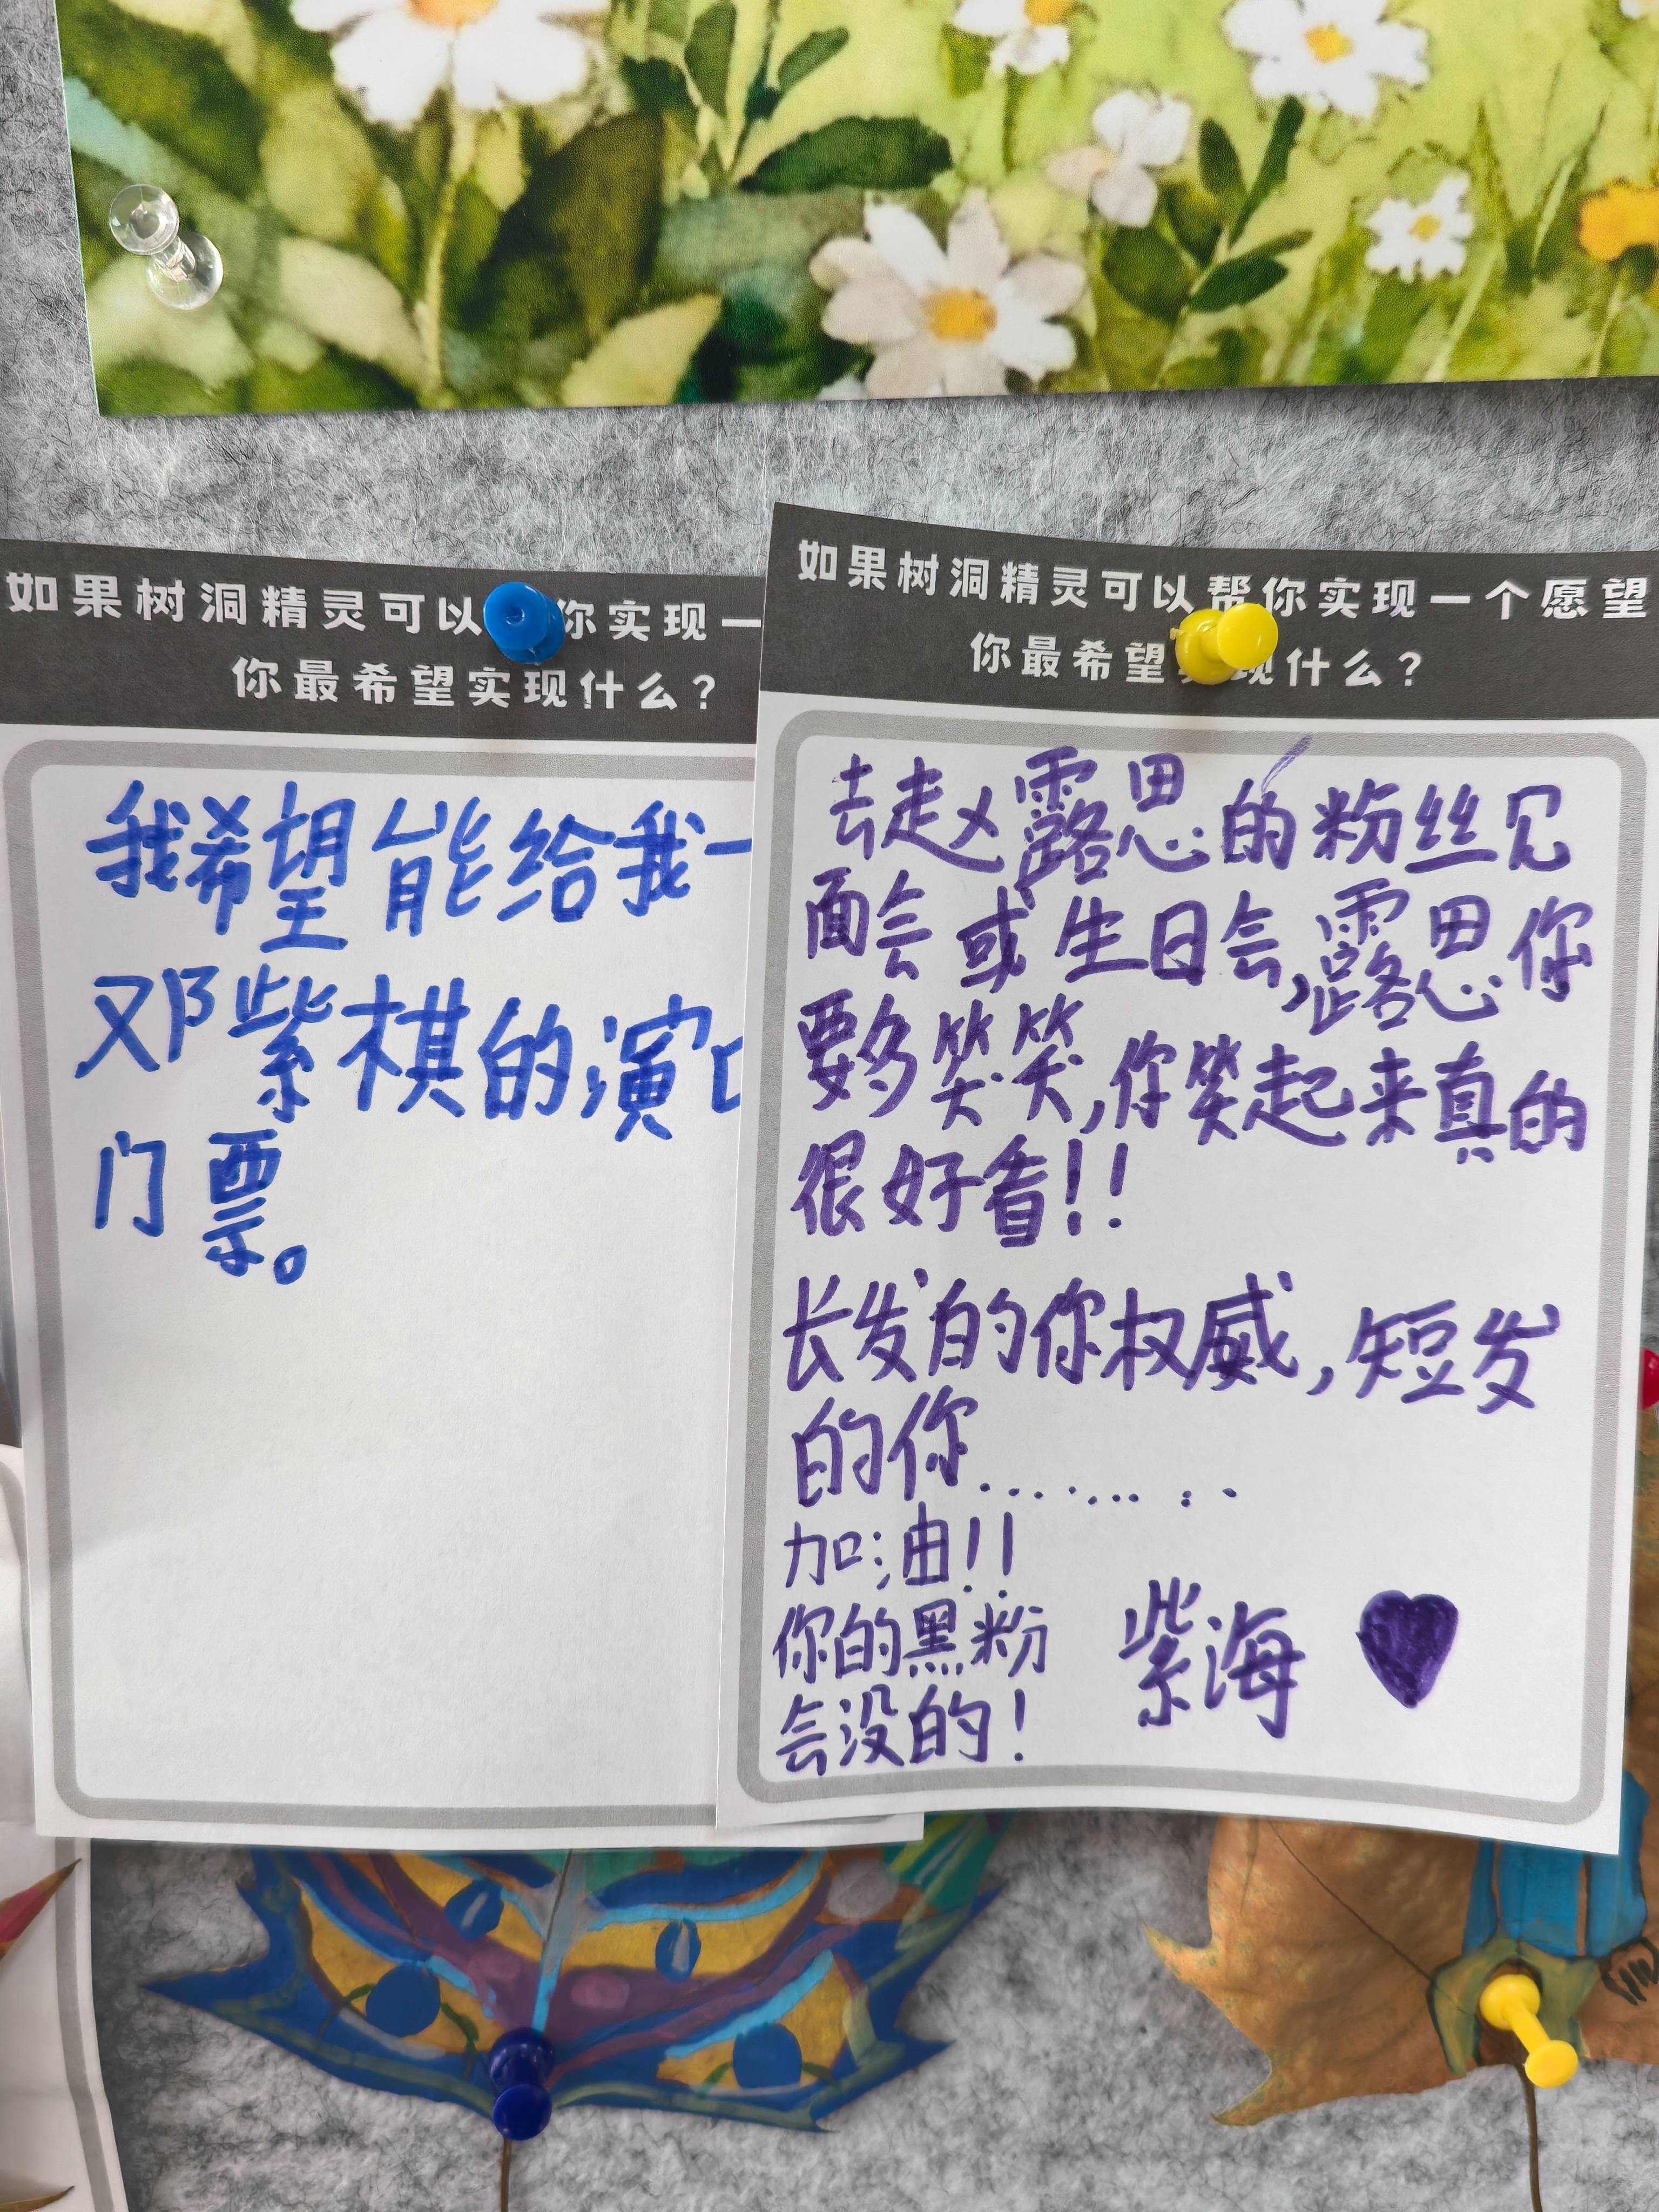 如果树洞精灵可以 你实现一
你最希望实现什么？
我希望能给我一
邓紫棋的演
门票。
如果树洞精灵可以帮你实现一个愿望
你最希望实现什么？
去赵露思的粉丝见
面会或生日会,露思你
要多笑笑,你笑起来真的
很好看!!
长发的你权威,短发
的你.........
加油!!
你的黑粉
会没的!
紫海